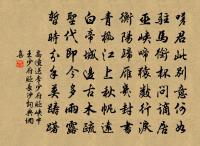 嗟君此別意何如
駐馬銜杯問謫居
巫峽啼猿數行淚
衡陽歸雁幾封書
青楓江上秋帆遠
白帝城邊古木疏
聖代即今多雨露
暫時分手莫躊躇
高適送李少府貶峽中
王少府貶長沙詞典網
集